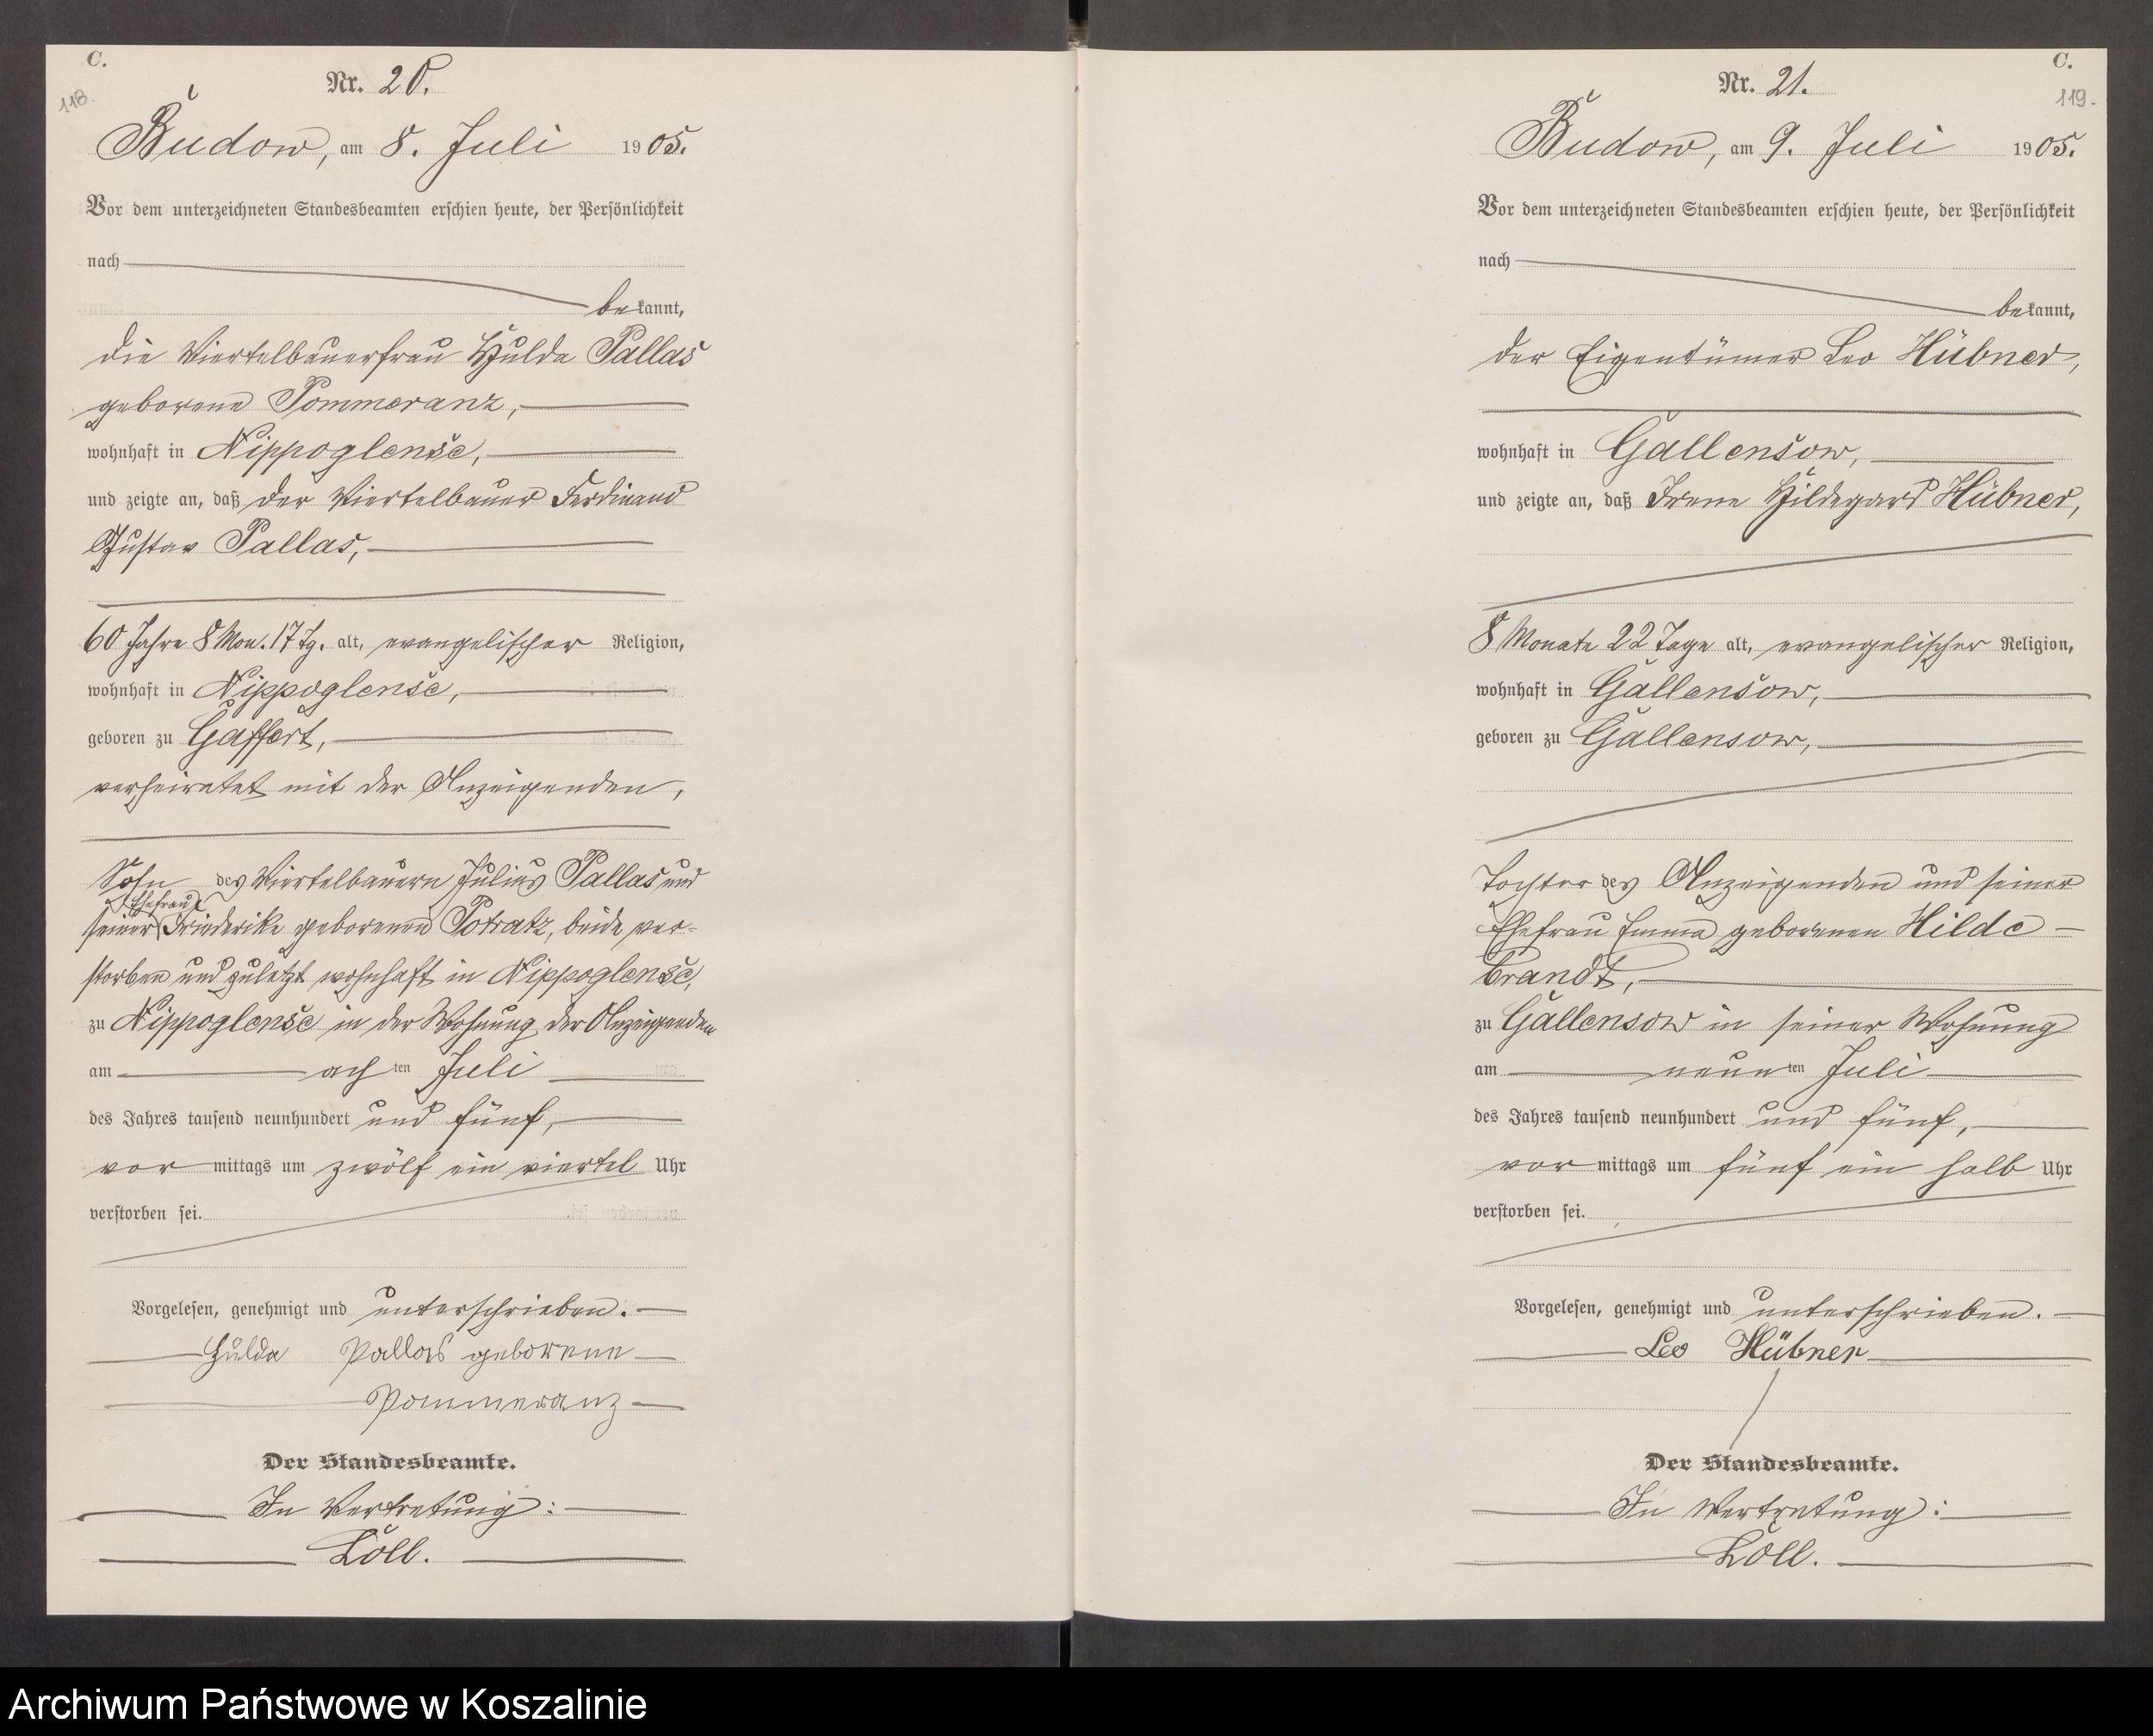 C.
118.
Nr. 20.
Budow, am 8. Juli 1905.
Vor dem unterzeichneten Standesbeamten erschien heute, der Persönlichkeit
nach
bekannt,
die Viertelbauerfrau Hulda Pallas
geborene Pommeranz,
wohnhaft in Nippoglense,
und zeigte an, daß der Viertelbauer Ferdinand
Gustav Pallas,
60 Jahre 8 Mon. 17 Tg. alt, evangelischer Religion,
wohnhaft in Nippoglense,
geboren zu Gaffert,
verheiratet mit der Anzeigenden,
Sohn des Viertelbauern Julius Pallas und
Ehefrau
seiner Friederike geborenen Potratz, beide ver-
storben und zuletzt wohnhaft in Nippoglense,
zu Nippoglense in der Wohnung der Anzeigenden
am achten Juli
des Jahres tausend neunhundert und fünf,
vormittags um zwölf ein viertel Uhr
verstorben sei.
Vorgelesen, genehmigt und unterschrieben.
Hulda Pallas geborene
Pommeranz
Der Standesbeamte.
In Vertretung:
Köll.
C.
119.
Nr. 21.
Budow, am 9. Juli 1905.
Vor dem unterzeichneten Standesbeamten erschien heute, der Persönlichkeit
nach
bekannt,
der Eigentümer Leo Hübner,
wohnhaft in Gallensow,
und zeigte an, daß Irene Hildegard Hübner,
8 Monate 22 Tage alt, evangelischer Religion,
wohnhaft in Gallensow,
geboren zu Gallensow,
Tochter des Anzeigenden und seiner
Ehefrau Emma geborenen Hilde-
brandt,
zu Gallensow in seiner Wohnung
am neunten Juli
des Jahres tausend neunhundert und fünf,
vormittags um fünf ein halb Uhr
verstorben sei.
Vorgelesen, genehmigt und unterschrieben.
Leo Hübner
Der Standesbeamte.
In Vertretung:
Köll.
Archiwum Państwowe w Koszalinie